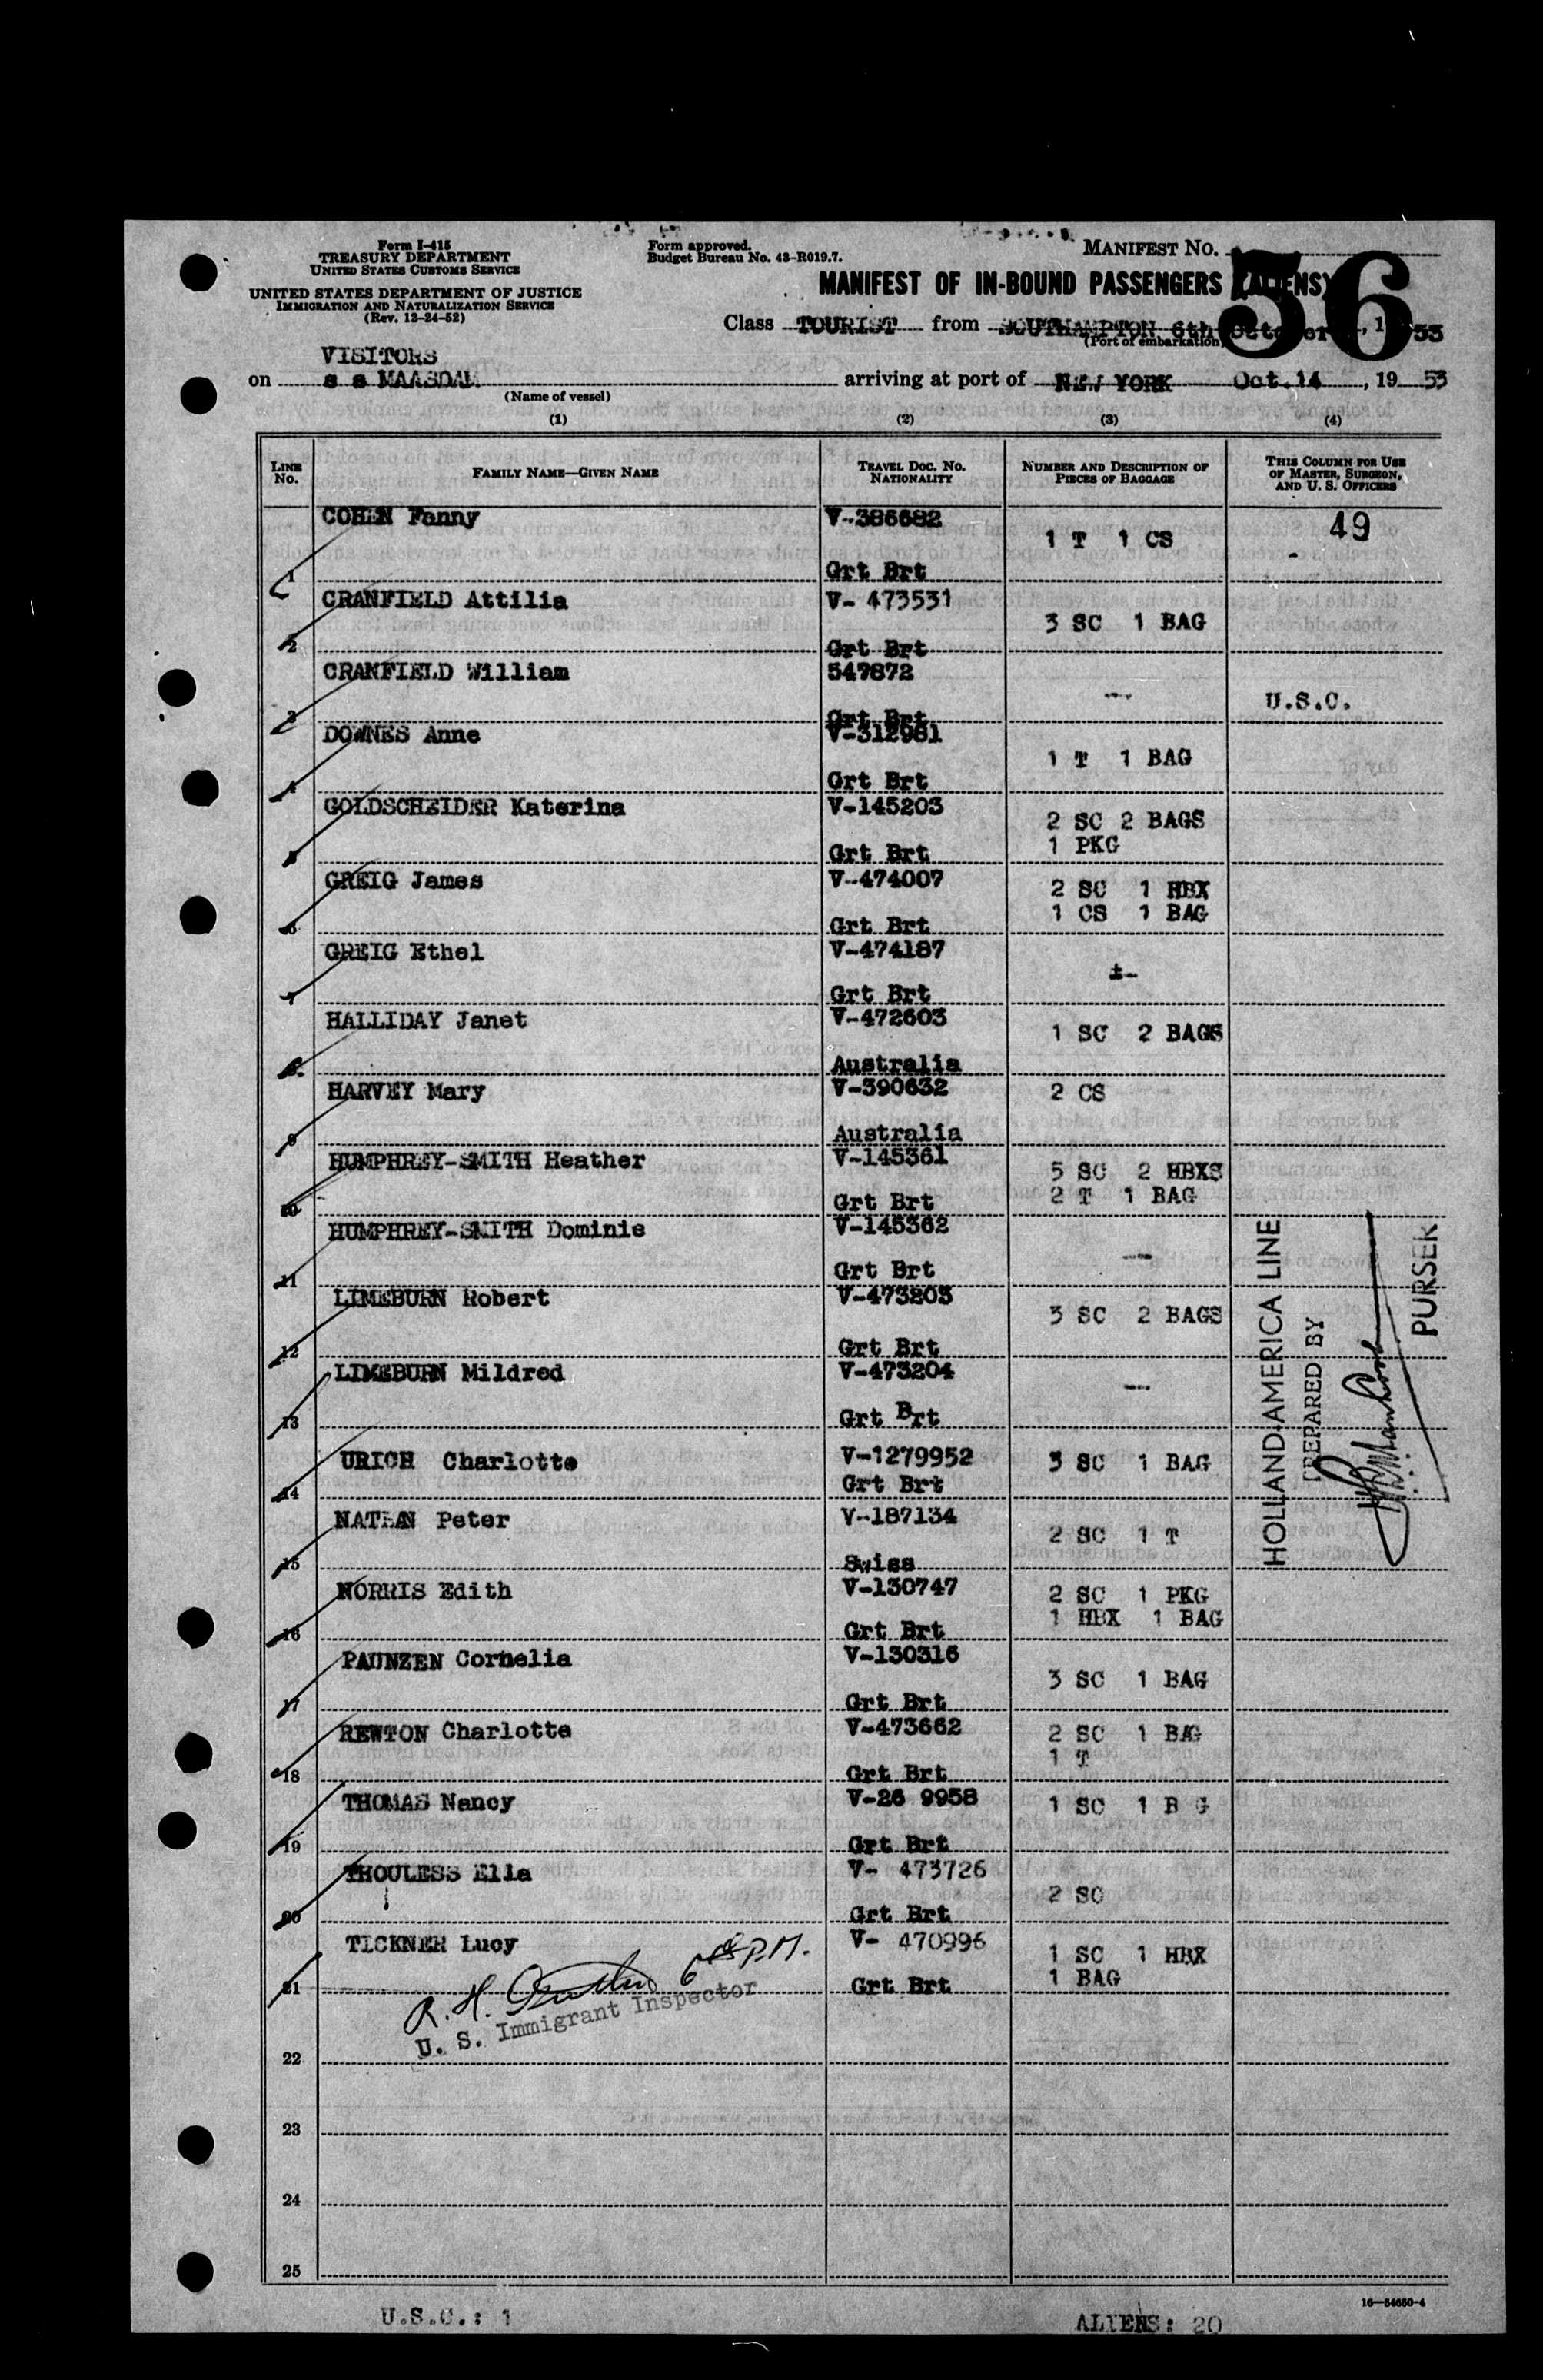 Form I-415
TREASURY DEPARTMENT
UNITED STATES CUSTOMS SERVICE
UNITED STATES DEPARTMENT OF JUSTICE
IMMIGRATION AND NATURALIZATION SERVICE
(Rev. 12-24-52)
Form approved.
Budget Bureau No. 43-R019.7.
MANIFEST NO.
56
MANIFEST OF IN-BOUND PASSENGERS (ALIENS)
Class TOURIST from SOUTHAMPTON 6th October, 1953
(Port of embarkation)
VISITORS
on s s MAASDAM arriving at port of NEW YORK Oct.14, 19 53
(Name of vessel)
(1) (2) (3) (4)
LINE No. FAMILY NAME—GIVEN NAME TRAVEL DOC. NO. NATIONALITY NUMBER AND DESCRIPTION OF PIECES OF BAGGAGE THIS COLUMN FOR USE OF MASTER, SURGEON, AND U. S. OFFICERS
COHEN Fanny V-386682 49
1 T 1 CS
1 Grt Brt
CRANFIELD Attilia V- 473531
3 SC 1 BAG
2 Grt Brt
CRANFIELD William 547872
--- U.S.C.
3 Grt Brt
DOWNES Anne V-312981
1 T 1 BAG
4 Grt Brt
GOLDSCHEIDER Katerina V-145203
2 SC 2 BAGS
1 PKG
5 Grt Brt
GREIG James V-474007
2 SC 1 HBX
1 CS 1 BAG
6 Grt Brt
GREIG Ethel V-474187
7 Grt Brt
HALLIDAY Janet V-472603
1 SC 2 BAGS
8 Australia
HARVEY Mary V-390632 2 CS
9 Australia
HUMPHREY-SMITH Heather V-145361
5 SC 2 HBXS
2 T 1 BAG
10 Grt Brt
HUMPHREY-SMITH Dominie V-145362
---
11 Grt Brt
LIMEBURN Robert V-473203
3 SC 2 BAGS
12 Grt Brt
LIMEBURN Mildred V-473204
---
13 Grt Brt
URICH Charlotte V-1279952 3 SC 1 BAG
14 Grt Brt
NATHAN Peter V-187134
2 SC 1 T
15 Swiss
NORRIS Edith V-130747 2 SC 1 PKG
1 HBX 1 BAG
16 Grt Brt
PAUNZEN Cornelia V-130316
3 SC 1 BAG
17 Grt Brt
REWTON Charlotte V-473662 2 SC 1 BAG
1 T
18 Grt Brt
THOMAS Nancy V-26 9958 1 SC 1 B G
19 Grt Brt
THOULESS Ella V- 473726
2 SC
20 Grt Brt
TICKNER Lucy V- 470996
1 SC 1 HBX
1 BAG
21 Grt Brt
R. H. P.M.
U. S. Immigrant Inspector
22
23
24
25
HOLLAND-AMERICA LINE
PREPARED BY
PURSER
16—54650-4
U.S.C.: 1 ALIENS: 20